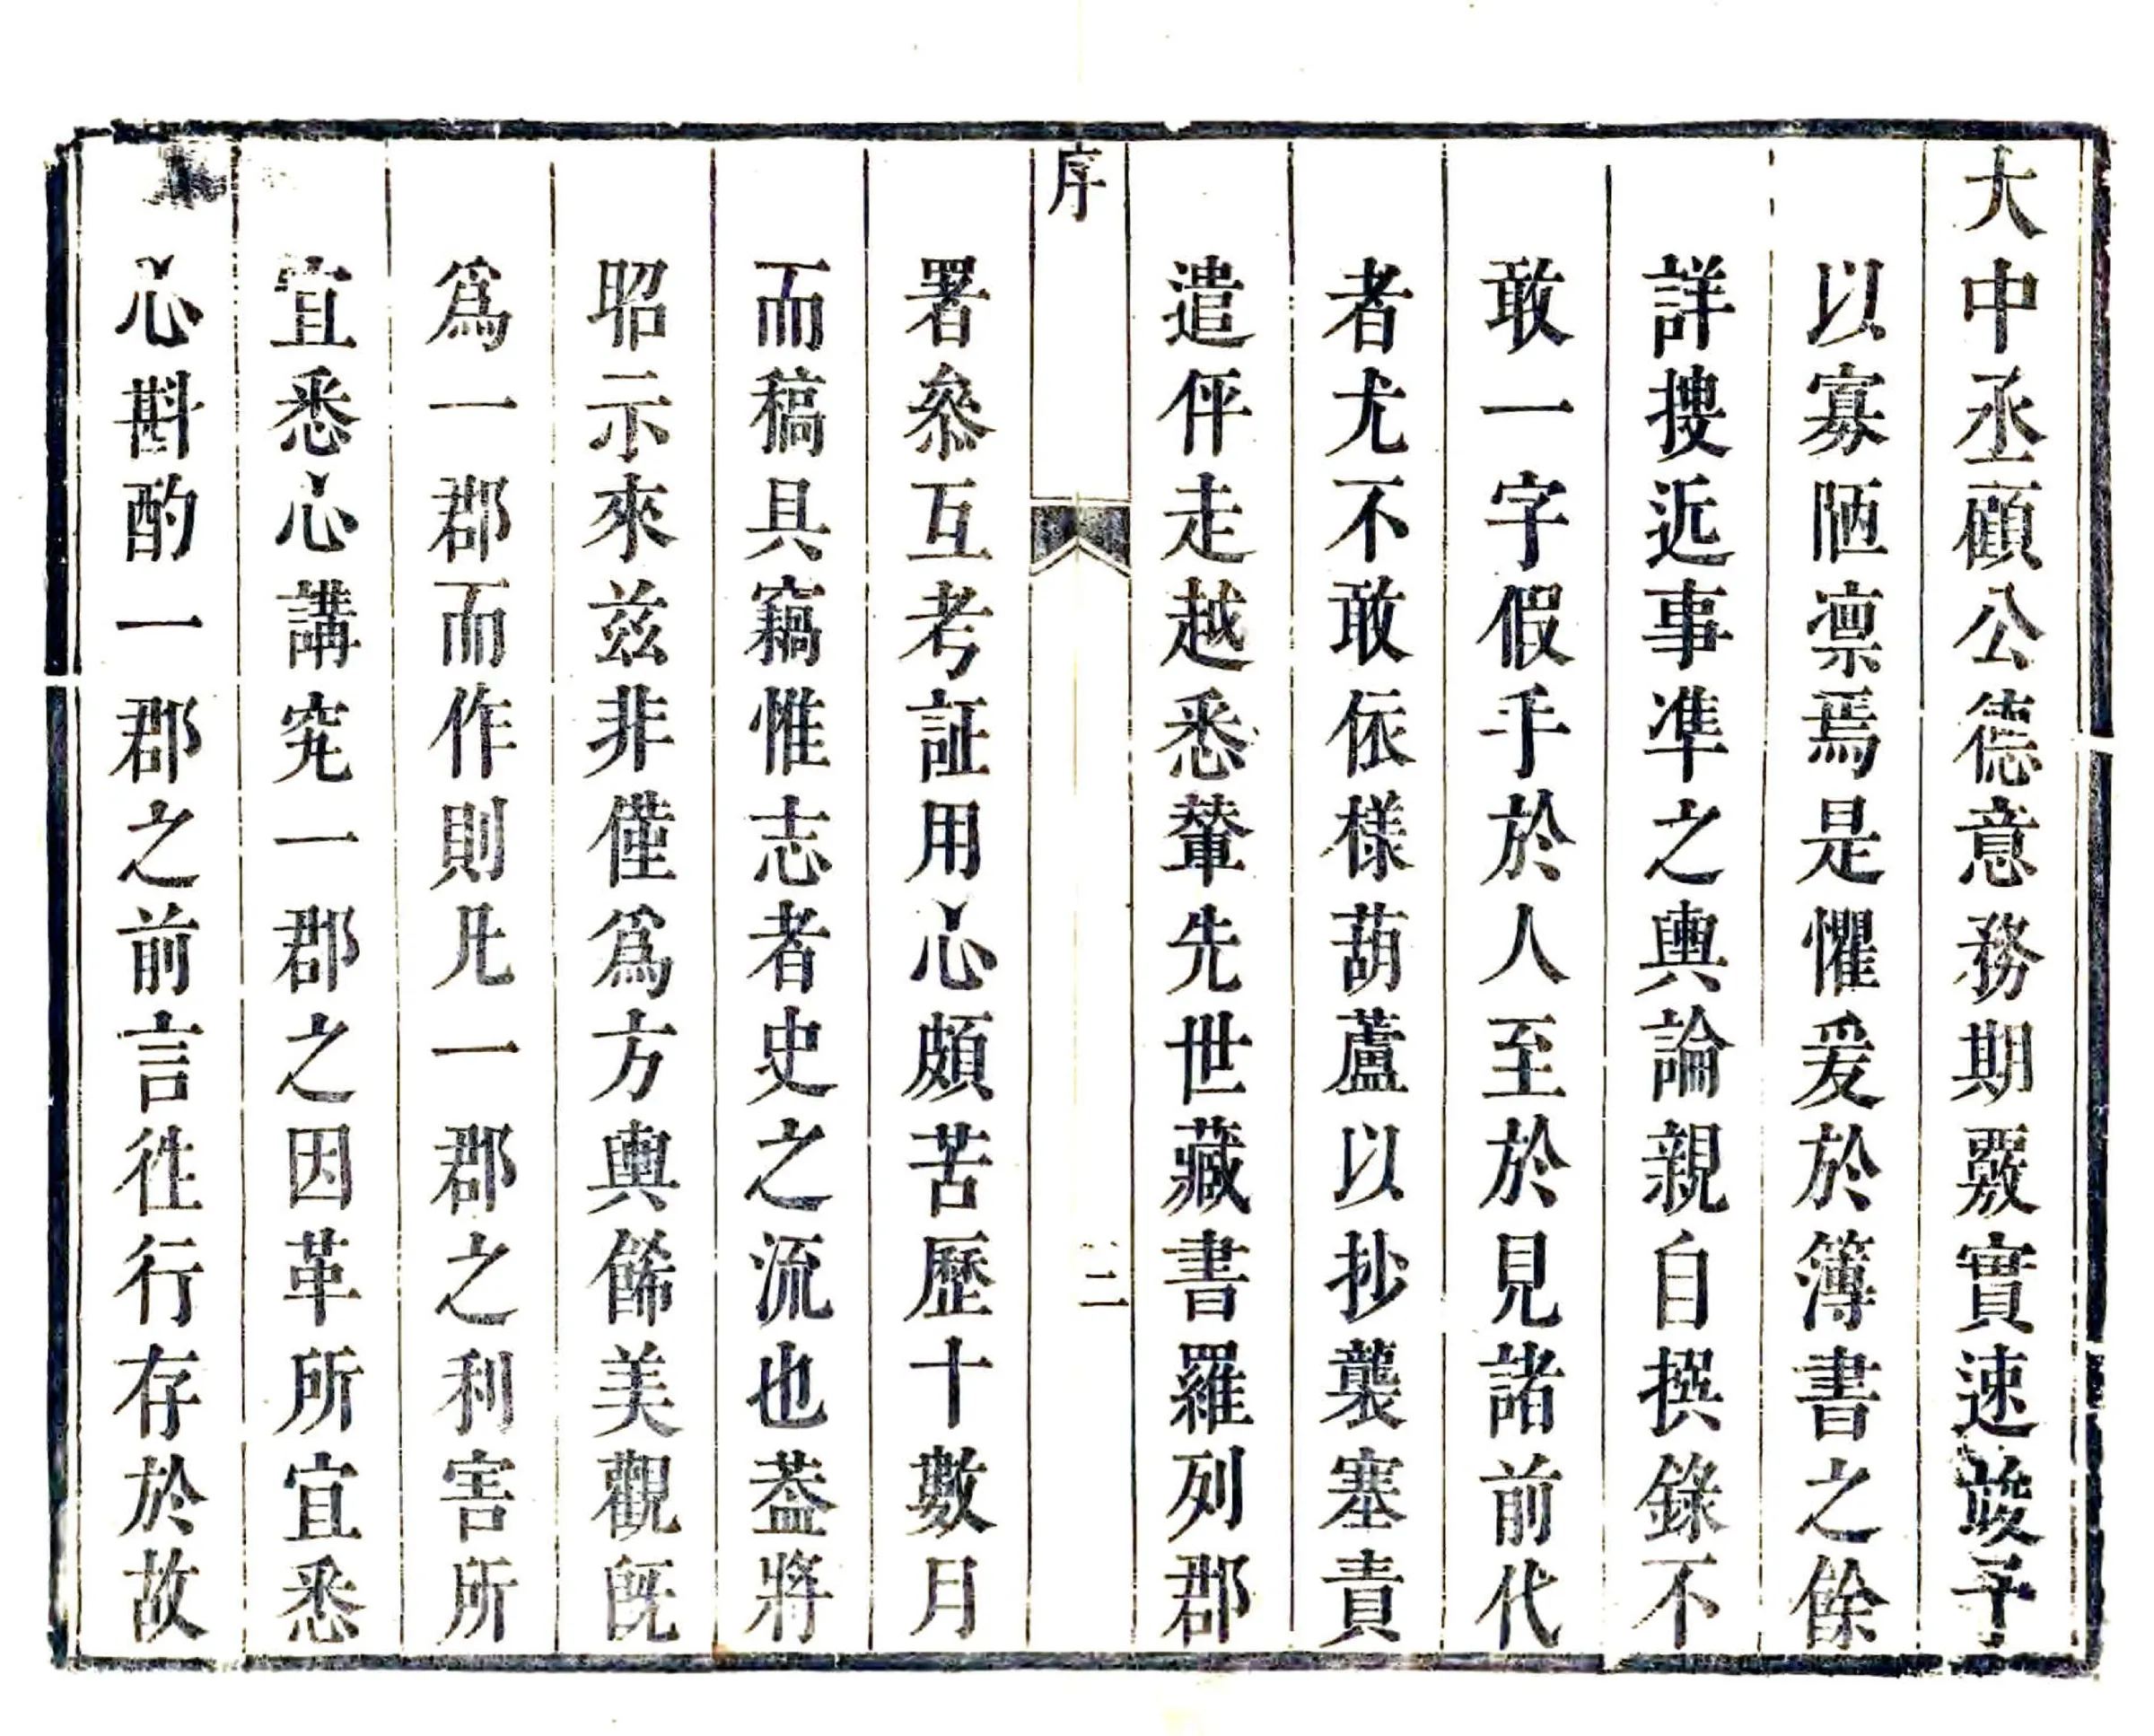 大中丞顧公德意務期覈實速竣予
以寡陋凛焉是懼爰於簿書之餘
詳搜近事準之輿論親自撰錄不
敢一字假手於人至於見諸前代
者尤不敢依樣葫蘆以抄襲塞責
遣伻走越悉輦先世藏書羅列郡
序
二
署叅互考証用心頗苦歷十數月
而稿具竊惟志者史之流也葢將
昭示來兹非僅爲方輿餙美觀旣
爲一郡而作則凡一郡之利害所
宜悉心講究一郡之因革所宜悉
心斟酌一郡之前言徃行存於故